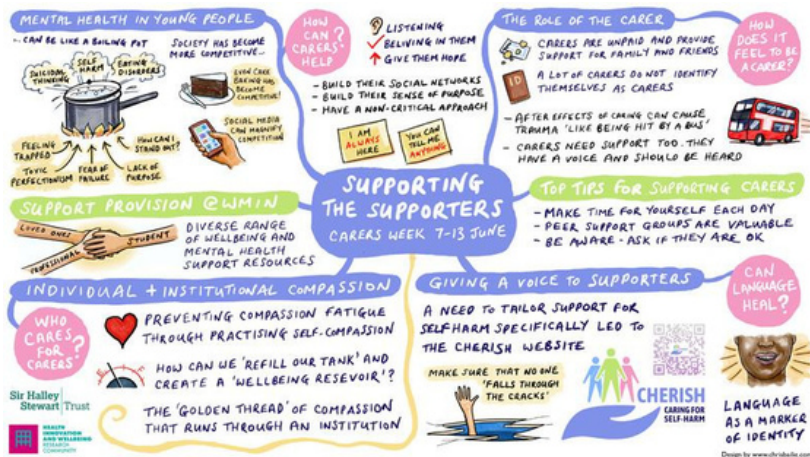 MENTAL HEALTH IN YOUNG PEOPLE
...CAN BE LIKE A BOILING POT
SUICIDAL
THINKING
SELF
HARM
EATING
DISORDERS
FEELING
TRAPPED
TOXIC
PERFECTIONISM
FEAR OF
FAILURE
LACK OF
PURPOSE
HOW CAN I
STAND OUT?
SOCIETY HAS BECOME
MORE COMPETITIVE...
EVEN CAKE
EATING HAS
BECOME
COMPETITIVE!
SOCIAL MEDIA
CAN MAGNIFY
COMPETITION
HOW
CAN
CARERS
HELP?
LISTENING
BELIVING IN THEM
GIVE THEM HOPE
- BUILD THEIR SOCIAL NETWORKS
- BUILD THEIR SENSE OF PURPOSE
- HAVE A NON-CRITICAL APPROACH
I AM
ALWAYS
HERE
YOU CAN
TELL ME
ANYTHING
THE ROLE OF THE CARER
CARERS ARE UNPAID AND PROVIDE
SUPPORT FOR FAMILY AND FRIENDS
ID
A LOT OF CARERS DO NOT IDENTIFY
THEMSELVES AS CARERS
- AFTER EFFECTS OF CARING CAN CAUSE
TRAUMA 'LIKE BEING HIT BY A BUS'
- CARERS NEED SUPPORT TOO. THEY
HAVE A VOICE AND SHOULD BE HEARD
HOW
DOES IT
FEEL TO BE
A CARER?
SUPPORTING
THE SUPPORTERS
CARERS WEEK 7-13 JUNE
SUPPORT PROVISION @WMIN
LOVED ONES
STUDENT
PROFESSIONAL
DIVERSE RANGE
OF WELLBEING AND
MENTAL HEALTH
SUPPORT RESOURCES
TOP TIPS FOR SUPPORTING CARERS
- MAKE TIME FOR YOURSELF EACH DAY
- PEER SUPPORT GROUPS ARE VALUABLE
- BE AWARE - ASK IF THEY ARE OK
INDIVIDUAL + INSTITUTIONAL COMPASSION
WHO
CARES
FOR
CARERS?
PREVENTING COMPASSION FATIGUE
THROUGH PRACTISING SELF-COMPASSION
HOW CAN WE 'REFILL OUR TANK' AND
CREATE A 'WELLBEING RESEVOIR'?
THE 'GOLDEN THREAD' OF COMPASSION
THAT RUNS THROUGH AN INSTITUTION
Sir Halley
Stewart Trust
HEALTH
INNOVATION
AND WELLBEING
RESEARCH
COMMUNITY
GIVING A VOICE TO SUPPORTERS
A NEED TO TAILOR SUPPORT FOR
SELFHARM SPECIFICALLY LED TO
THE CHERISH WEBSITE
MAKE SURE THAT NO ONE
'FALLS THROUGH
THE CRACKS'
CHERISH
CARING FOR
SELF-HARM
CAN
LANGUAGE
HEAL?
LANGUAGE
AS A MARKER
OF IDENTITY